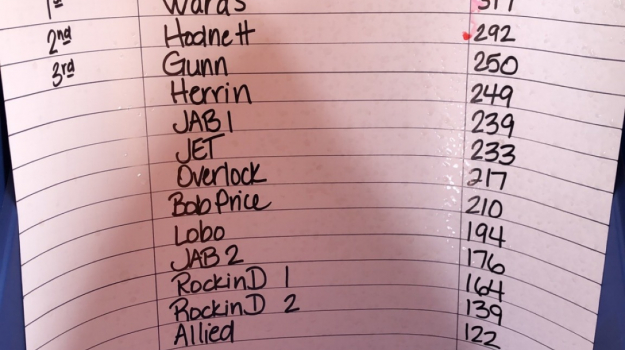 1st Wards 317
2nd Hodnett 292
3rd Gunn 250
Herrin 249
JAB 1 239
JET 233
Overlock 217
Bob Price 210
Lobo 194
JAB 2 176
RockinD 1 164
RockinD 2 139
Allied 122